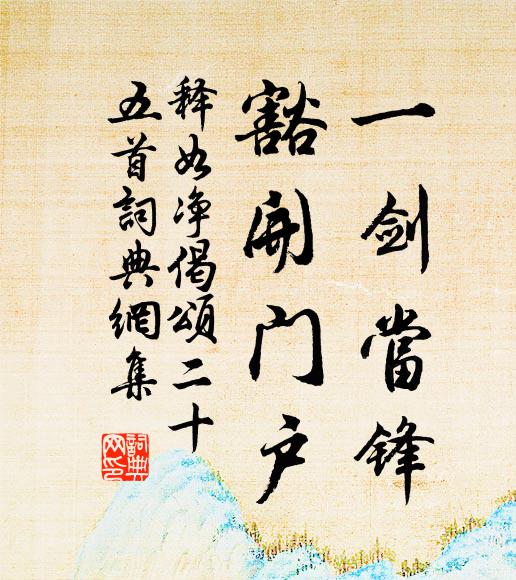 一剑當锋
豁開门户
释如净偈頌二十
五首詞典網集
詞典网印